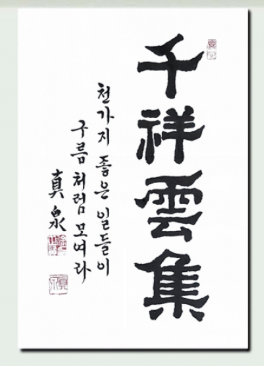 千祥雲集
천가지 좋은 일들이
구름처럼 모여라
真泉